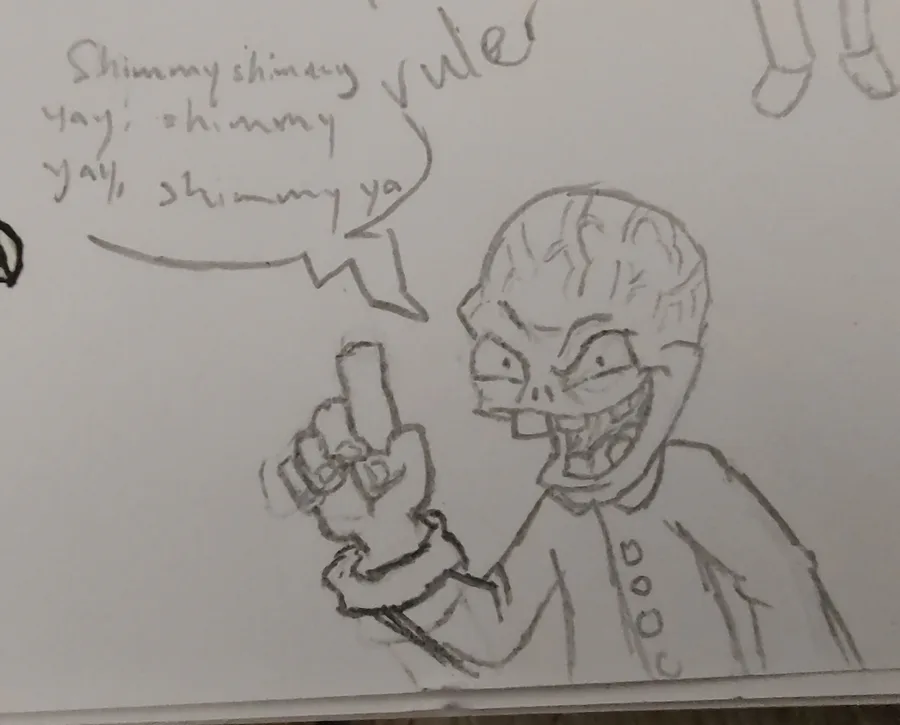 ruler
Shimmy shimmy
yay, shimmy
yay, shimmy ya